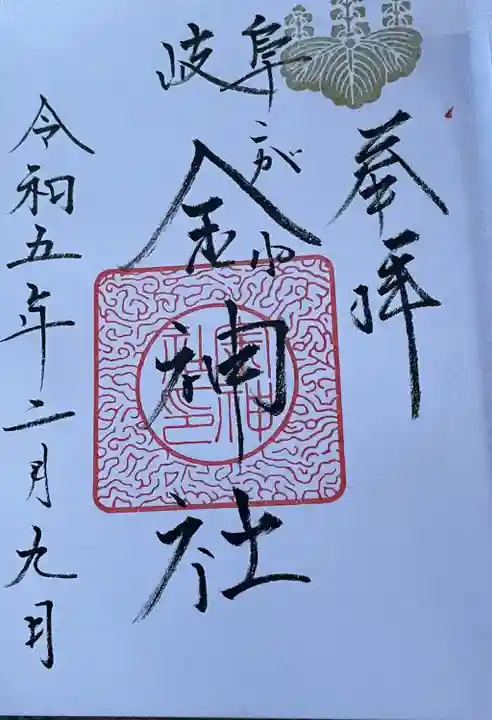 奉拝
岐阜
金神社
こがね
金神社印
令和五年二月九日